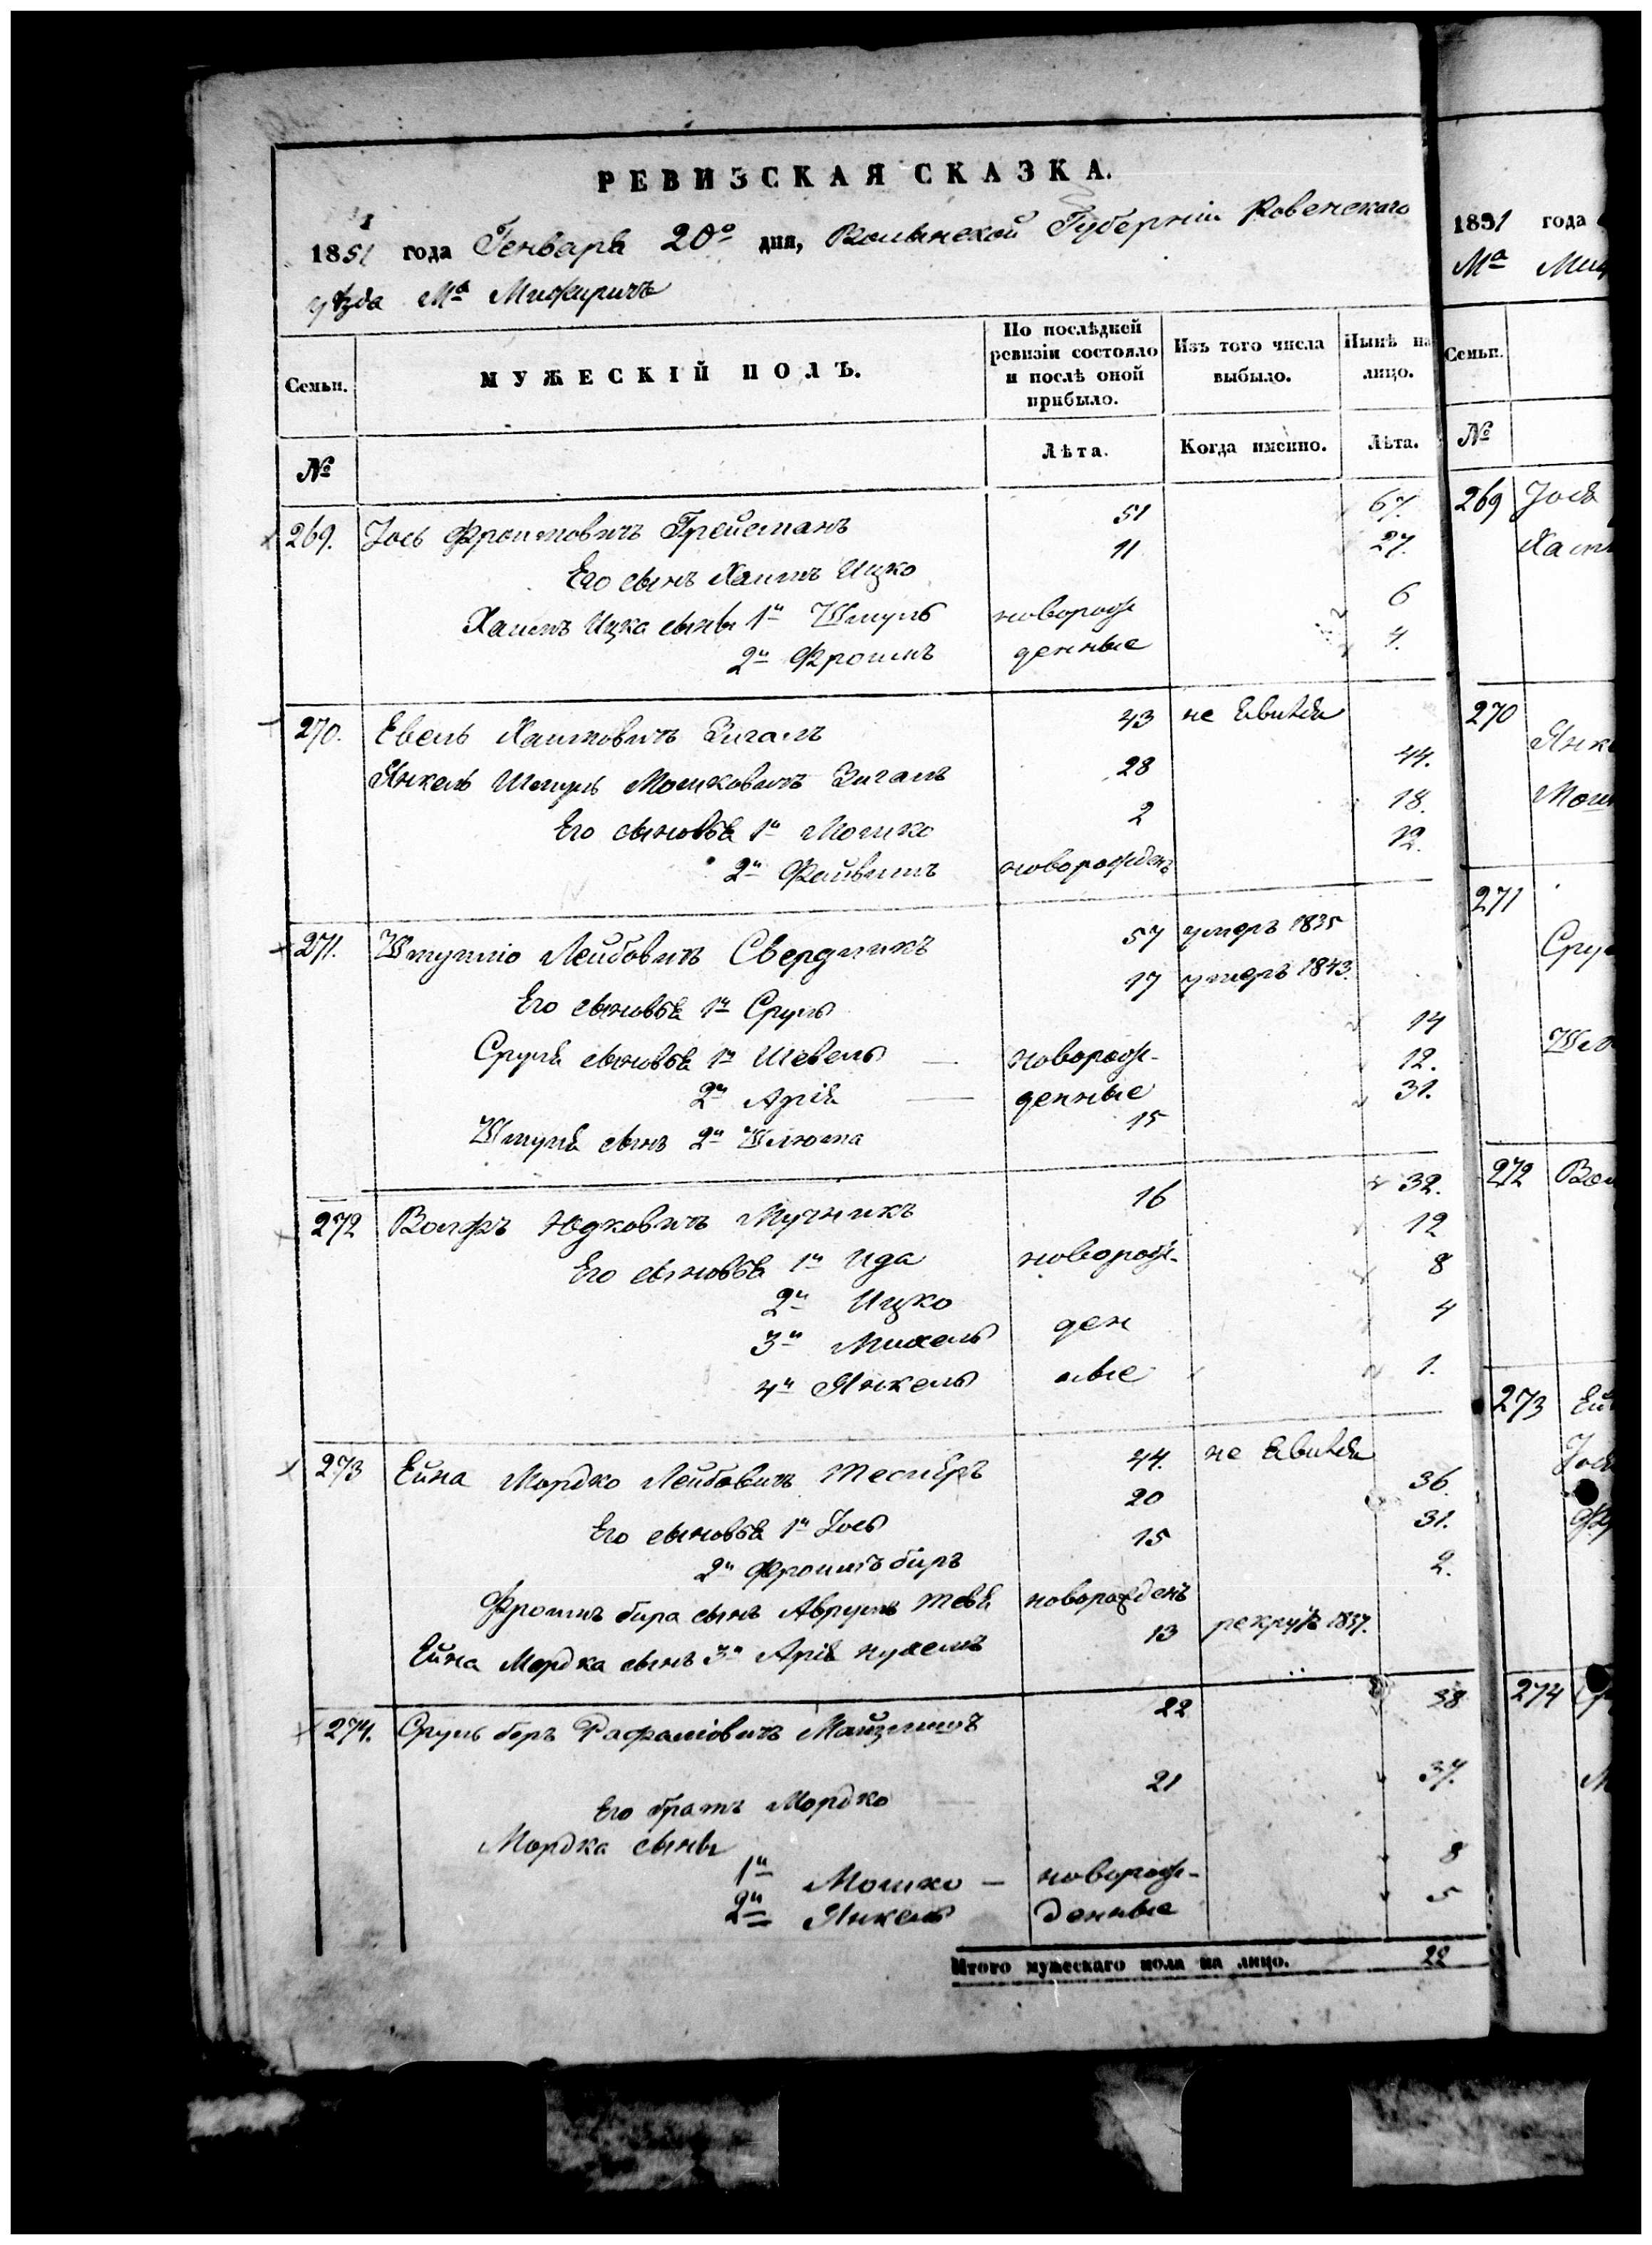 РЕВИЗСКАЯ СКАЗКА.
1851 года Генваря 20º дня, Волынской Губерніи Ровенскаго
уѣзда Мª Межиричъ
Семьи.
МУЖЕСКІЙ ПОЛЪ.
По послѣдней ревизіи состояло и послѣ оной прибыло.
Изъ того числа выбыло.
Нынѣ на лицо.
№
Лѣта.
Когда именно.
Лѣта.
269. Іось Фроимовичъ Грейсманъ 51 67.
Его сынъ Хаимъ Ицко 11 27.
Хаимъ Ицка сыны 1й Шмуль новорож 6
2й Фроимъ денные 4.
270. Евель Хаимовичъ Зигалъ 43 не явился
Янкель Шмуль Мошковичъ Зигалъ 28 44.
Его сыновья 1й Мошко 2 18.
2й Файвишъ новорожденъ 12.
271. Лейбовичъ Свердликъ 57 умеръ 1835
Его сыновья 1й Сруль 17 умеръ 1843.
Сруля сыновья 1й Шевель — новорож- 14
2й Арія — денные 12.
Шмуля сынъ 2й Шлюма 15 31.
272 Волфъ Юдковичъ Мучникъ 16 32.
Его сыновья 1й Ида новорож- 12
2й Ицко 8
3й Михель ден 4
4й Янкель ные 1.
273 Ейна Мордко Лейбовичъ 44. не явился
Его сыновья 1й Іось 20 36.
2й Фроимъ биръ 15 31.
Фроимъ бира сынъ Аврумъ Тевя новорожденъ 2.
Ейна Мордка сынъ 3й Арія 13 рекрутъ 1837.
274. Сруль беръ Рафаиловичъ 22 38
Его братъ Мордко 21 37.
Мордка сыны
1й Мошко — новорож- 8
2й Янкель денные 5
Итого мужескаго пола на лицо. 22
1851 года
Мª
Семьи.
№
269 Іося
270
271
272
273
274